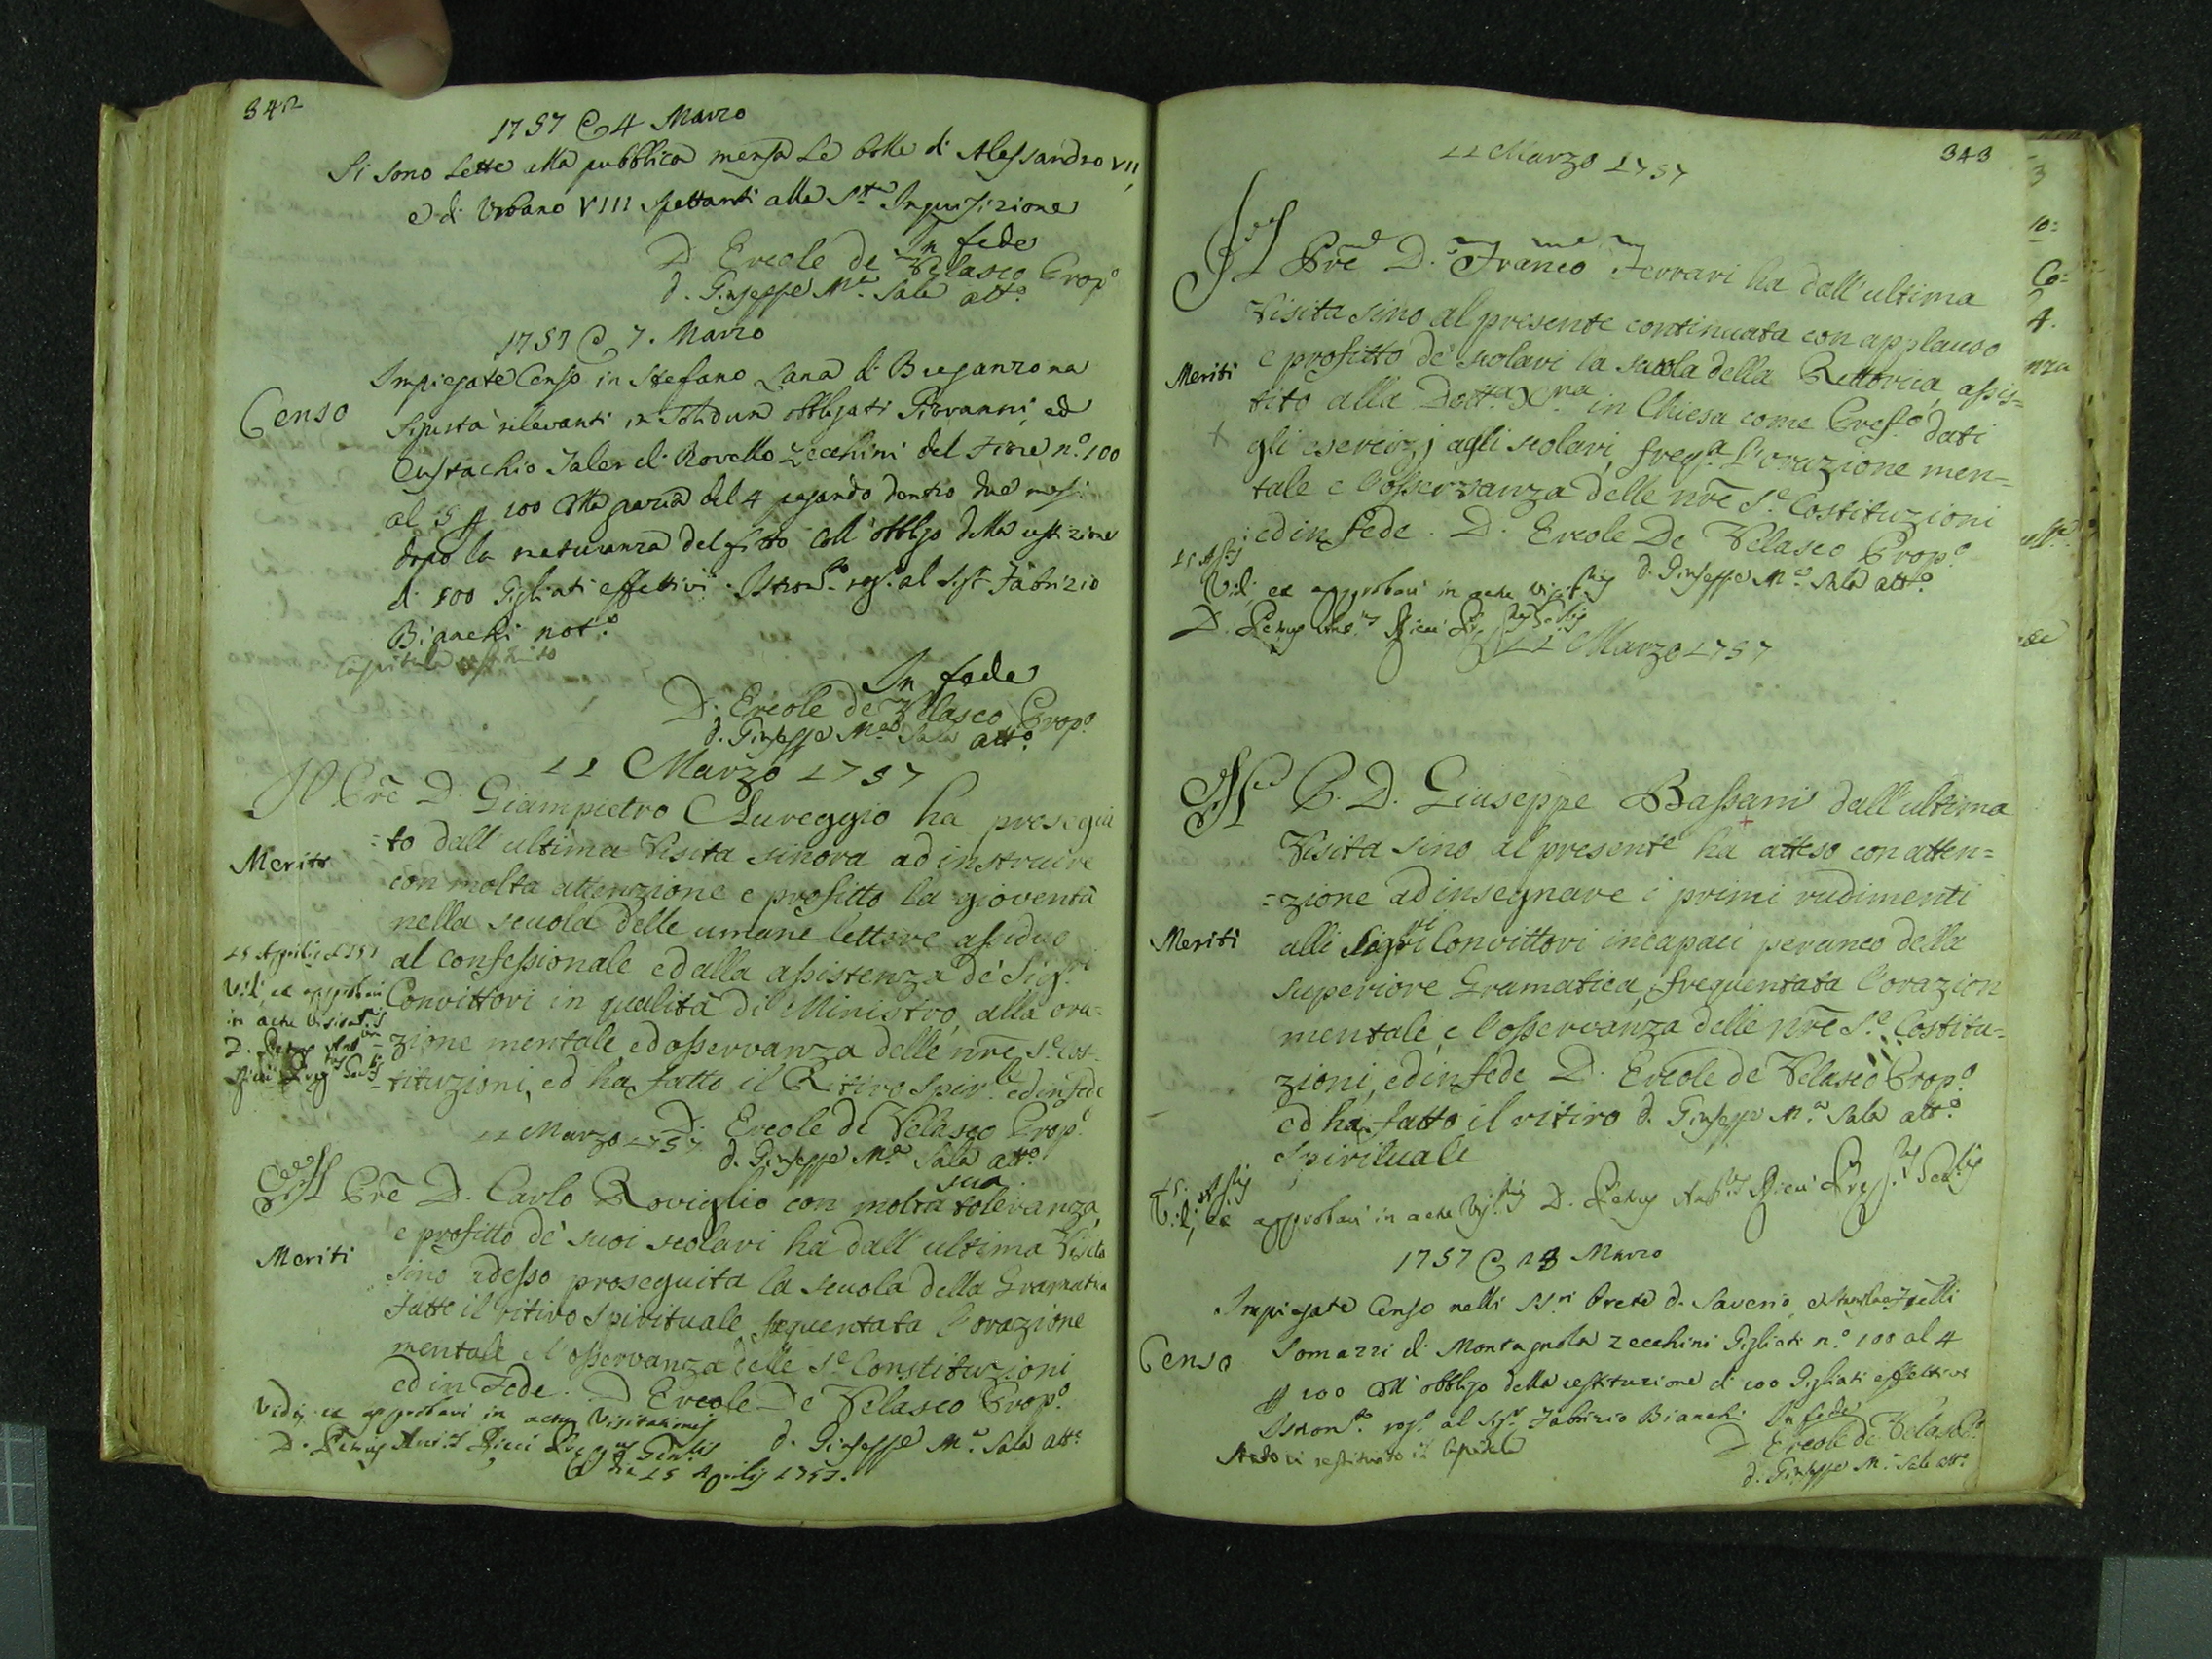 342
1757 @ 4 Marzo
Si sono Lette alla pubblica mensa Le Bolle di Alessandro VII,
e di Urbano VIII spettanti alla S.ta Inquisizione
In fede
D. Ercole de Velasco Prop.o
d. Giuseppe M.a Sala att.o
1757 @ 7. Marzo
Censo
Impiegato Censo in Stefano Lana di Breganzona
Sigurtà rilevanti in solidum obbligati Giovanni, ed
Eustachio Taler di Rovello Zecchini del Fiore n.o 100
al 5 p 100 alla del 4 pagando dentro due mesi
dopo la maturanza del fitto coll'obbligo della
di 100 Gigliati effettivi. Istrom.to rog.o al Sig.r Fabrizio
Bianchi not.o
In fede
D. Ercole de Velasco Prop.o
d. Giuseppe M.a Sala att.o
11 Marzo 1757
Il Pre D. Giampietro Aureggio ha prosegui
=to dall'ultima Visita sinora ad instruire
Meriti
con molta attenzione e profitto la gioventù
nella scuola delle umane lettere assiduo
al confessionale ed alla assistenza de' Sig.ri
Convittori in qualità di Ministro, alla ora=
zione mentale, ed osservanza delle nre S.e Cos=
tituzioni, ed ha fatto il Ritiro Spir.le ed in fede
15 Aprilis 1757
Vidi, et approbavi
in actu Visitat.nis
D. Petrus Ant.us
Ricci Præp.tus Gen.lis
D. Ercole de Velasco Prop.o
d. Giuseppe M.a Sala att.o
11 Marzo 1757
Il Pre D. Carlo Roviglio con molta sua tolleranza,
e profitto de' suoi scolari ha dall'ultima Visita
Meriti
sino adesso proseguita la scuola della Gramatica
Fatto il ritiro Spirituale, frequentata l'orazione
mentale e l'osservanza delle S.e Constituzioni
ed in Fede. D Ercole De Velasco Prop.o
d. Giuseppe M.a Sala att.o
Vidi, et approbavi in actu Visitationis
D. Petrus Ant.us Ricci Præp.us Gen.lis
die 15 Aprilis 1757.
343
11 Marzo 1757
Il Pre D. Franco Ferrari ha dall'ultima
Visita sino al presente continuata con applauso
Meriti
e profitto de' scolari la scuola della Rettorica, assis=
tito alla Dott.a Xna in Chiesa come Pref.o dati
gli esercizj agli scolari, freq.a l'orazione men=
tale e l'osservanza delle nre S.e Costituzioni
ed in fede. D. Ercole De Velasco Prop.o
d. Giuseppe M.a Sala att.o
15 Ap.lis
Vidi, et approbavi in actu Visit.nis
D. Petrus Ant.us Ricci Præp.tus Gen.lis
11 Marzo 1757
Il P. D. Giuseppe Bassani dall'ultima
Visita sino al presente ha atteso con atten=
=zione ad insegnare i primi rudimenti
Meriti
alli Sigri Convittori incapaci per anco della
superiore Gramatica, frequentata l'orazion
mentale, e l'osservanza delle nre S.e Costitu=
zioni, ed in fede D. Ercole de Velasco Prop.o
ed ha fatto il ritiro d. Giuseppe M.a Sala att.o
Spirituale
15. Ap.lis
Vidi, et approbavi in actu Vis.nis D. Petrus Ant.us Ricci Præp.tus Gen.lis
1757 @ 28 Marzo
Impiegato Censo nelli SS.ri Prete d. Saverio, e Stanislao Frelli
Censo
Somazzi di Montagnola Zecchini Gigliati n.o 100 al 4
p 100 coll'obbligo della restituzione di 100 Gigliati effettivi
Istrom.to rog.o al Sig.r Fabrizio Bianchi In fede
D Ercole de Velasco P.o
d. Giuseppe M.a Sala att.o
restituito il Capitale